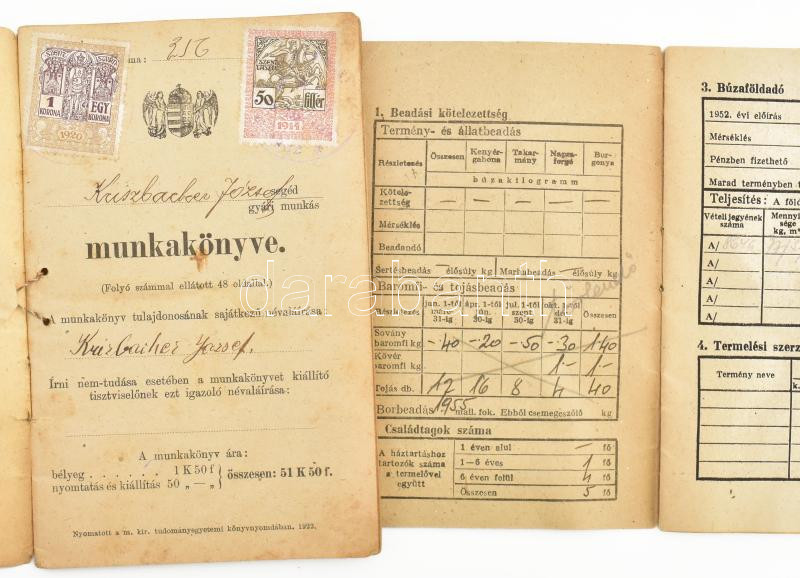 ma: 216
1 KORONA
EGY KORONA
1920
SZENT LÁSZLÓ
50 fillér
1914
Kriszbacher József
segéd
gyári munkás
munkakönyve.
(Folyó számmal ellátott 48 oldallal.)
A munkakönyv tulajdonosának sajátkezű névaláirása
Írni nem-tudása esetében a munkakönyvet kiállító
tisztviselőnek ezt igazoló névaláirása:
A munkakönyv ára:
bélyeg . . . . . . 1 K 50 f
nyomtatás és kiállítás 50 „ — „
összesen: 51 K 50 f.
Nyomatott a m. kir. tudományegyetemi könyvnyomdában, 1922.
1. Beadási kötelezettség
Termény- és állatbeadás
Részletezés Összesen Kenyér-gabona Takar-mány Napra-forgó Bur-gonya
búzakilogramm
Kötele-zettség — — — — —
Mérséklés
Beadandó
Sertésbeadás — élősúly kg Marhabeadás — élősúly kg
Baromfi- és tojásbeadás
Részletezés jan. 1-től márc. 31-ig ápr. 1-től jún. 30-ig júl. 1-től szept. 30-ig okt. 1-től dec. 31-ig Összesen
Sovány baromfi kg —40 —20 —50 —30 1·40
Kövér baromfi kg 1— 1—
Tojás db. 12 16 8 4 40
Borbeadás mall. fok. Ebből csemegeszőlő kg
1955
Családtagok száma
A háztartáshoz tartozók száma a termelővel együtt
1 éven alul — fő
1—6 éves 1 fő
6 éven felül 4 fő
Összesen 5 fő
3. Búzaföldadó
1952. évi előírás
Mérséklés
Pénzben fizethető
Marad terményben t
Teljesítés: A föld
Vételi jegyének száma
Mennyi-sége kg, m
A/
A/
A/
A/
A/
4. Termelési szerz
Termény neve
k.
darabanth.com